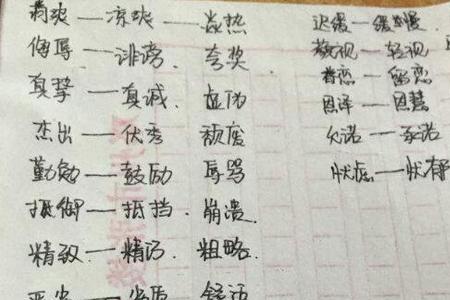 凉爽——凉爽——炎热
侮辱——诽谤 夸奖
真挚——真诚、虚伪
杰出——优秀 颓废
勤勉——鼓励 辱骂
抵御——抵挡、崩溃.
精致——精巧、粗略.
迟缓——缓慢
藐视——轻视
眷恋——留恋
恩泽——恩惠
允诺——承诺
忧虑——忧郁